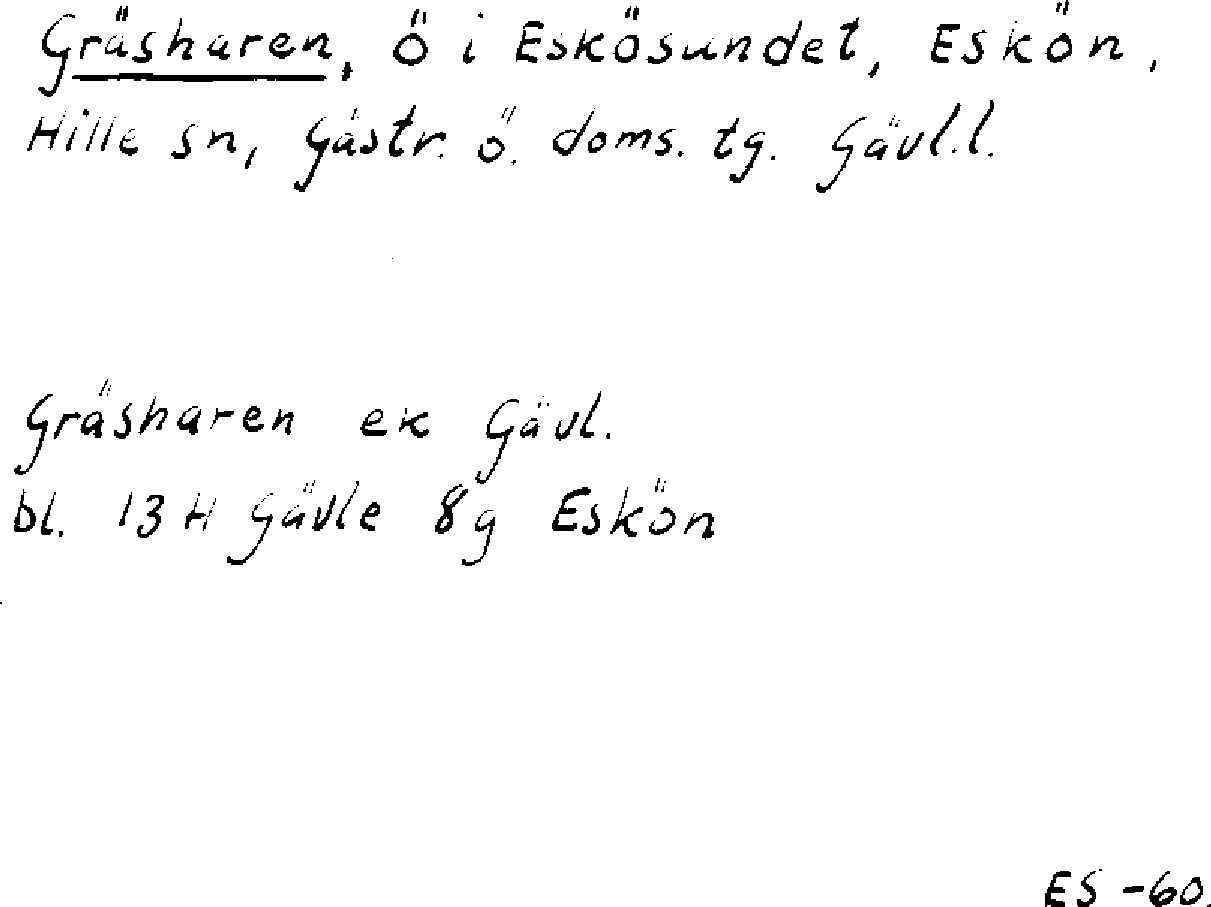 Gräsharen, ö i Eskösundet, Eskön,
Hille sn, Gästr. ö. doms. tg. Gävl.l.
Gräsharen ek Gävl.
bl. 13H Gävle 8g Eskön
ES -60.